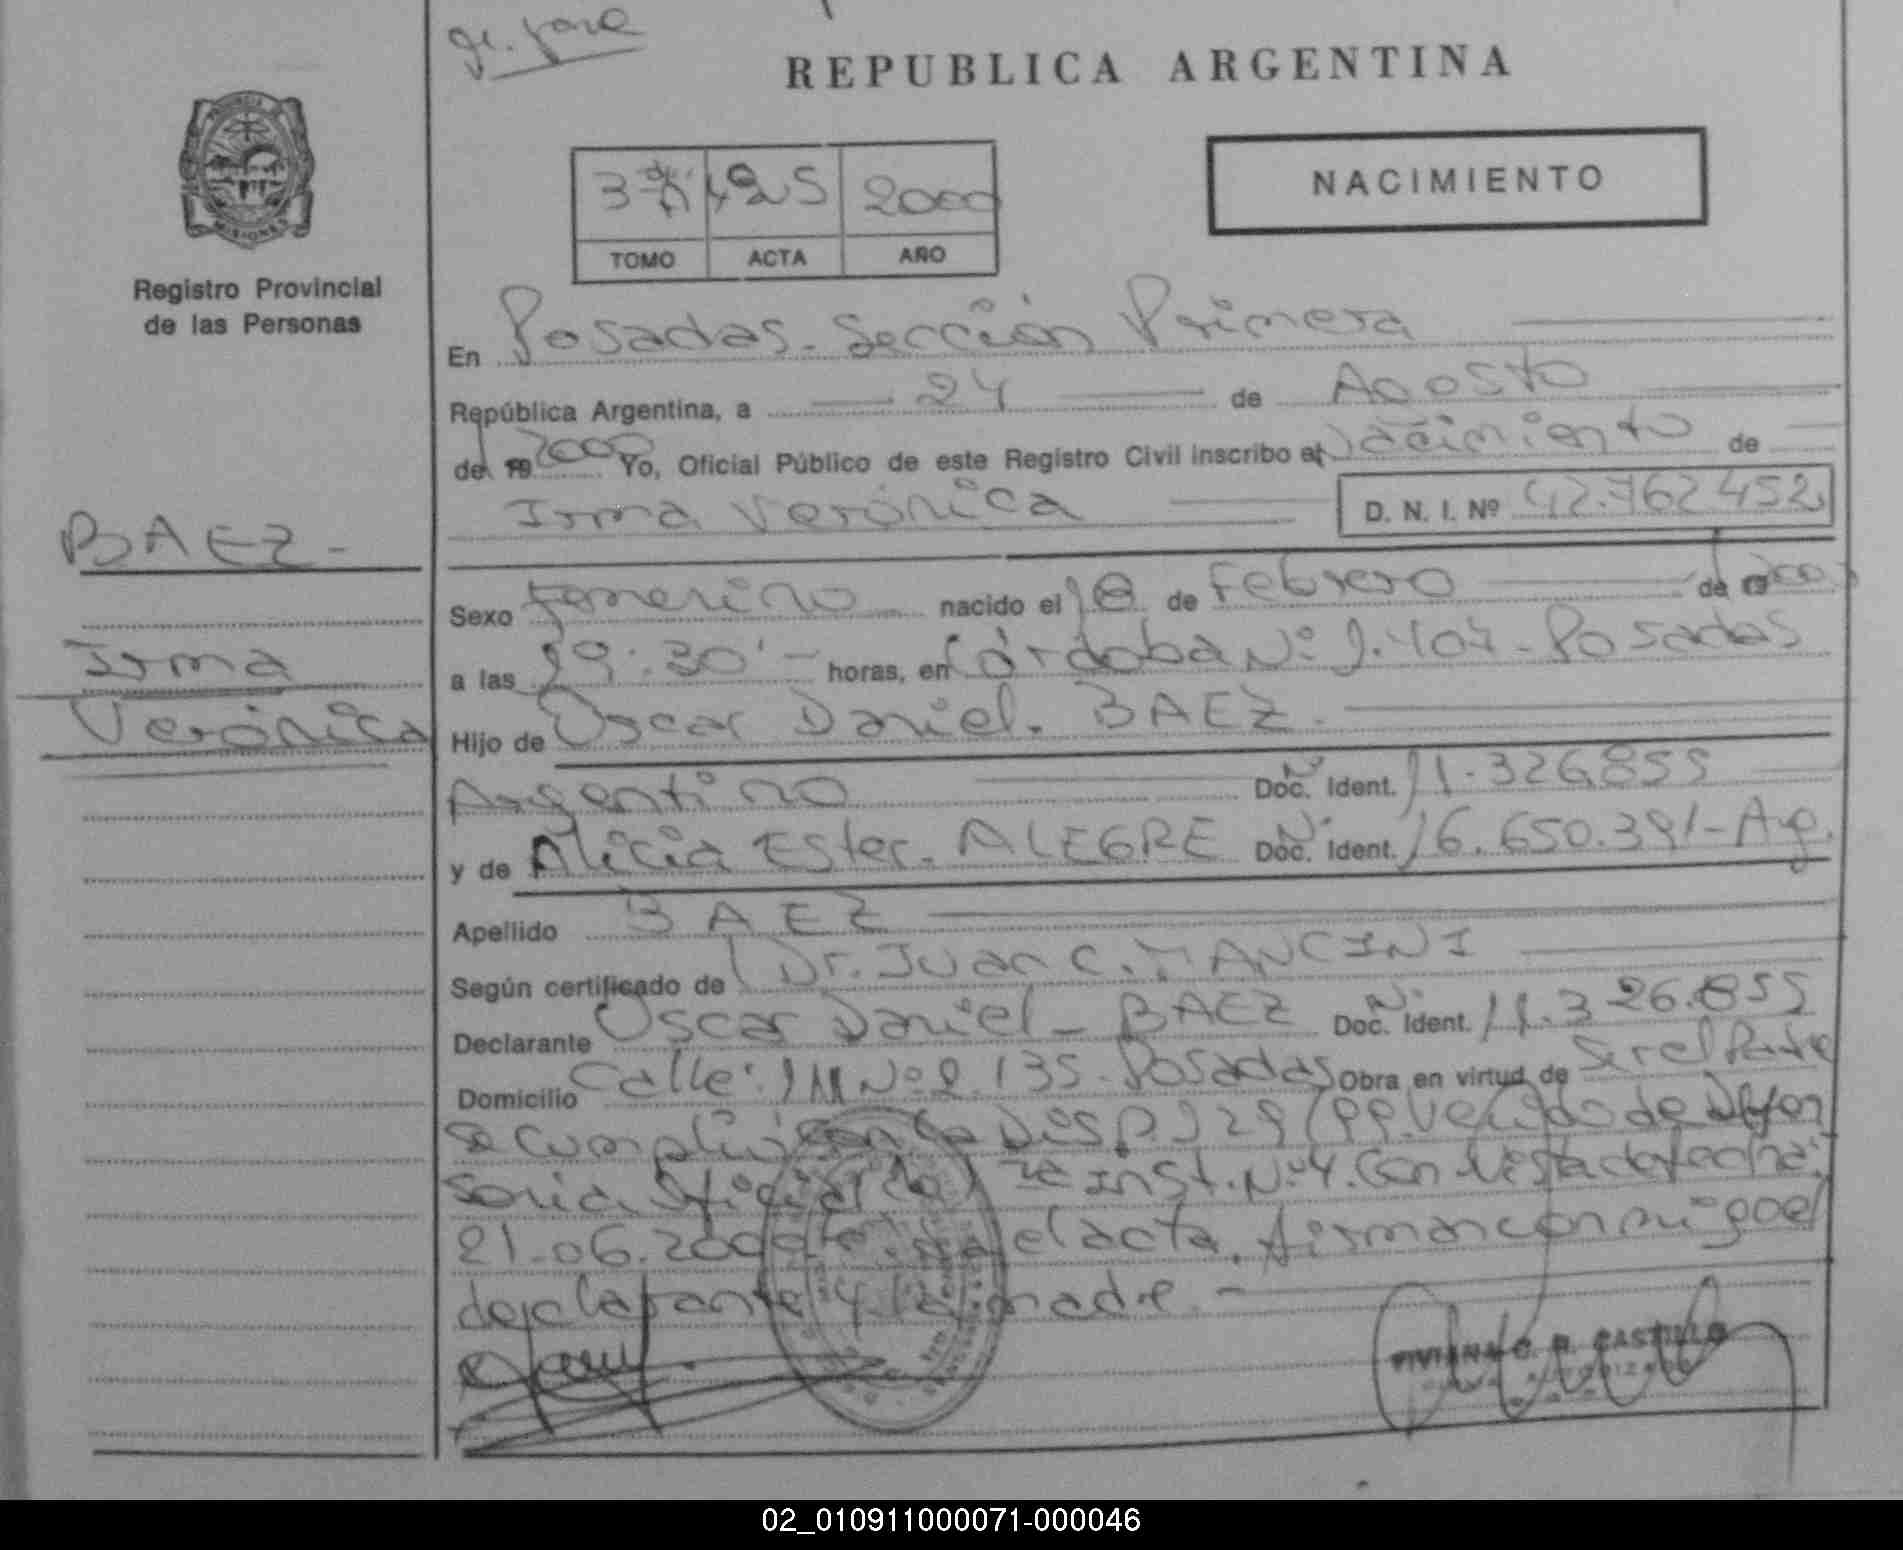 REPUBLICA ARGENTINA
PROVINCIA DE
MISIONES
Registro Provincial
de las Personas
NACIMIENTO
425 2000
TOMO ACTA AÑO
En Posadas - Sección Primera
República Argentina, a 24 de Agosto
del 19 2000 Yo, Oficial Público de este Registro Civil inscribo el Nacimiento de
Irma Verónica D. N. I. Nº 42.762.452
BAEZ -
Irma
Verónica
Sexo femenino nacido el 18 de Febrero del 19 2000
a las 19:30' - horas, en Córdoba Nº 1.407 - Posadas
Hijo de Oscar Daniel. BAEZ.
Argentino Doc. Nº Ident. 11.326.855
y de Alicia Ester. ALEGRE Doc. Nº Ident. 16.650.391 - Arg.
Apellido BAEZ
Según certificado de Dr. Juan C. MANCINI
Declarante Oscar Daniel - BAEZ Doc. Nº Ident. 11.326.855
Domicilio Calle: Nº 2.135 - Posadas Obra en virtud de Ser el Padre
Se cumplió con la Disp. 129/99. de Defen
soria Oficial de 1ra Inst. Nº 4. Con Vista de fecha:
21-06.2000 el acta. firman conmigo el
declarante y la madre. -
VIVIANA C. R. CASTILLO
02_010911000071-000046